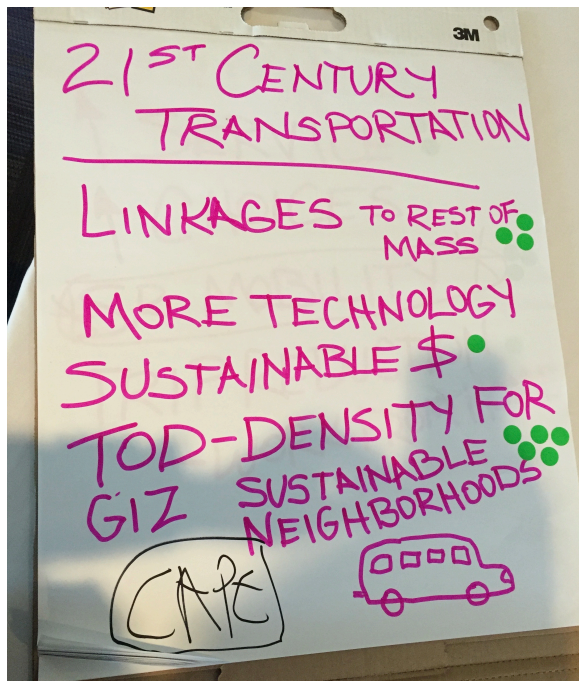 3M
21ST CENTURY
TRANSPORTATION
LINKAGES TO REST OF
MASS
MORE TECHNOLOGY
SUSTAINABLE $
TOD-DENSITY FOR
SUSTAINABLE
GIZ NEIGHBORHOODS
CAPE